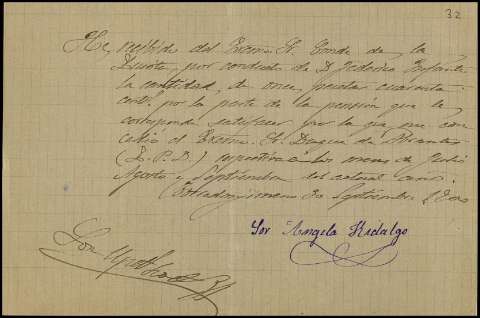 32
He recibido del Excmo Sr. Conde de la
por conducto de D. Federico
la cantidad de once pesetas cuarenta
cents. por la parte de la pensión que le
corresponde satisfacer por la que me con
cedió el Excmo. Sr. Duque de Abrantes
(Q. P. D.) respectiva a los meses de Julio
Agosto y Septiembre del actual año.
30 Septiembre
Sor Angela Hidalgo
Son